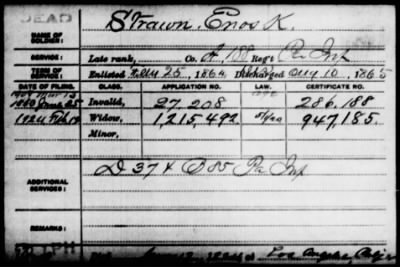 DEAD
NAME OF SOLDIER: Strawn, Enos K.
SERVICE: Late rank, Co. A, 188 Reg't Pa Inf
TERM OF SERVICE: Enlisted 25, 1864 Discharged Aug 10, 1865
DATE OF FILING. CLASS. APPLICATION NO. LAW. CERTIFICATE NO.
1880 June 25 Invalid, 27,208 286,188
1924 Widow, 1,215,492 947,185.
Minor,
ADDITIONAL SERVICES: D 37 & B 85 Pa Inf
REMARKS:
Los Angeles, Calif